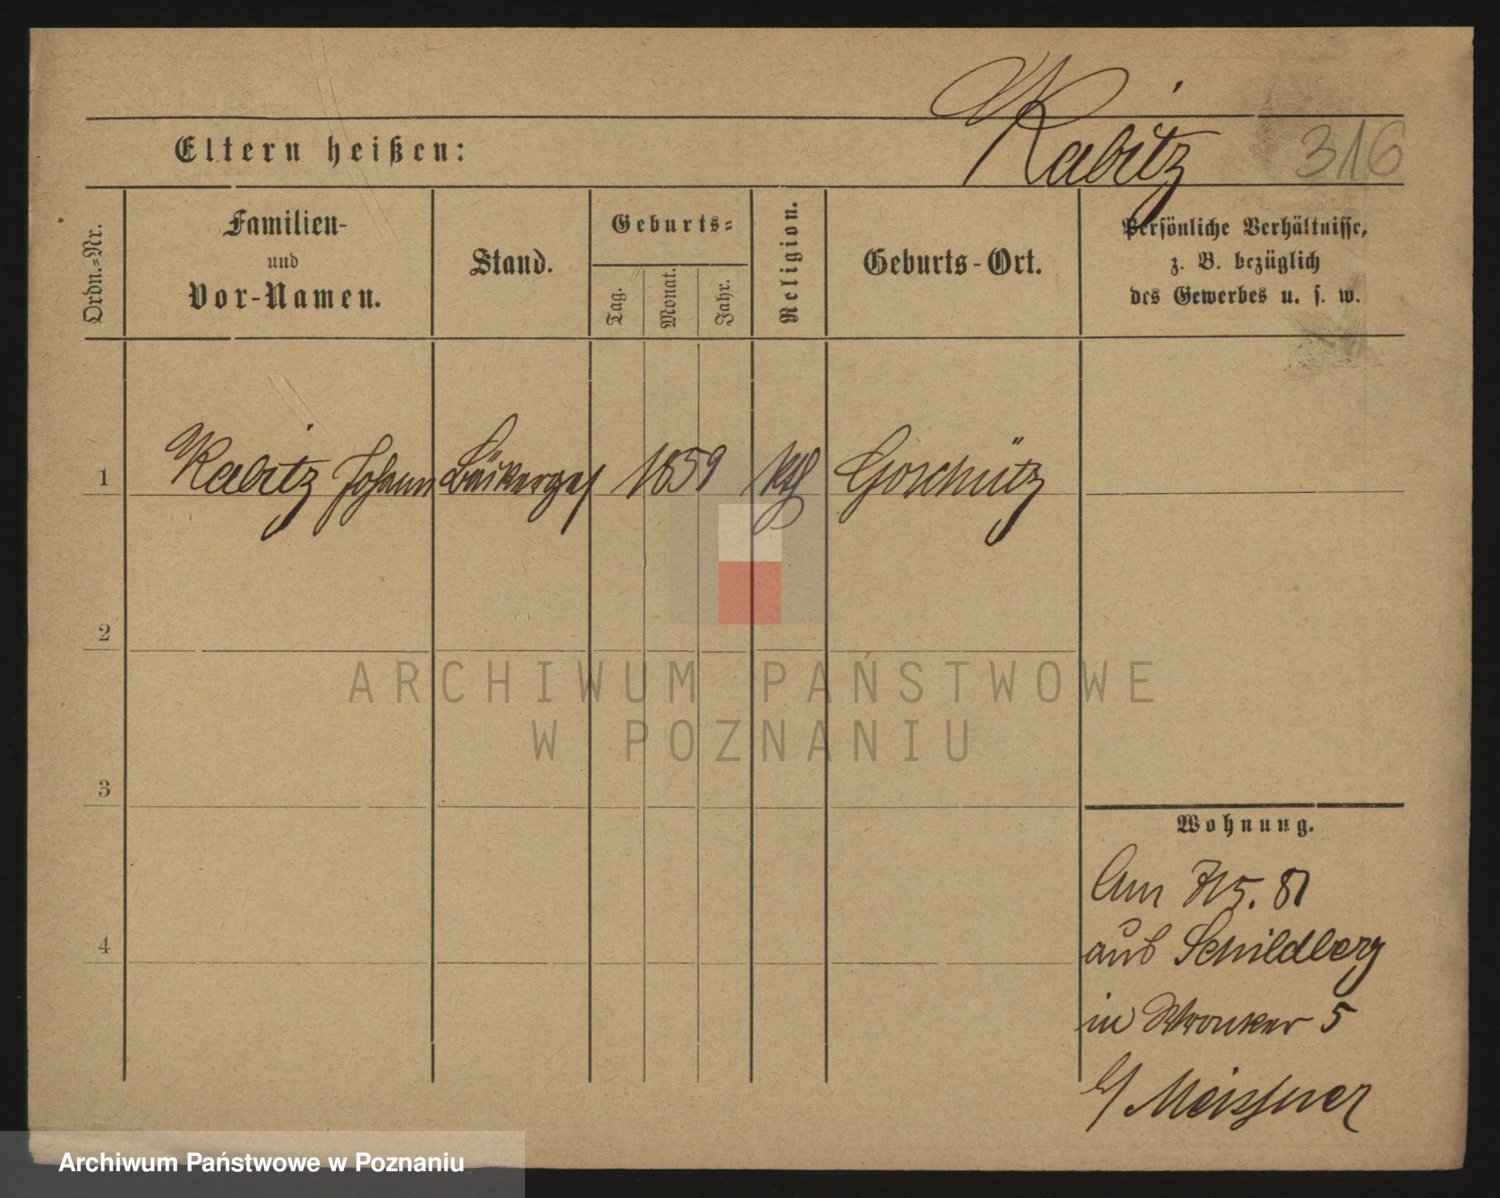 Kabitz
316
Eltern heißen:
Ordn.-Nr.
Familien-
und
Vor-Namen.
Stand.
Geburts-
Tag.
Monat.
Jahr.
Religion.
Geburts-Ort.
Persönliche Verhältnisse,
z. B. bezüglich
des Gewerbes u. s. w.
1 Kabitz Johann Bäckerges 1859 kth Goschütz
2
ARCHIWUM PAŃSTWOWE
W POZNANIU
3
Wohnung.
Am 7/5. 81
aus Schildberg
4
in Wronker 5
b/ Meissner
Archiwum Państwowe w Poznaniu